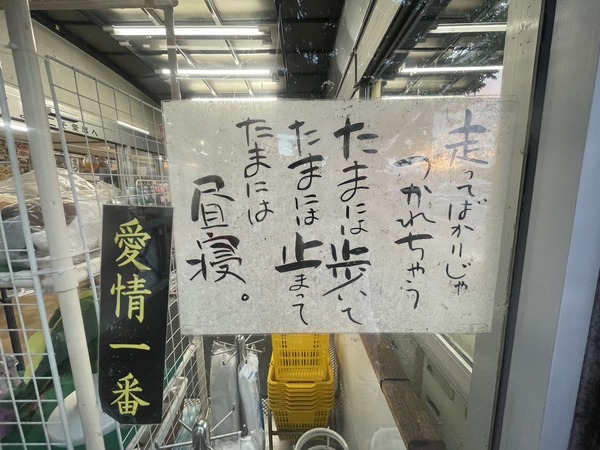 走ってばかりじゃ
つかれちゃう
たまには歩いて
たまには止まって
たまには
昼寝。
愛情一番